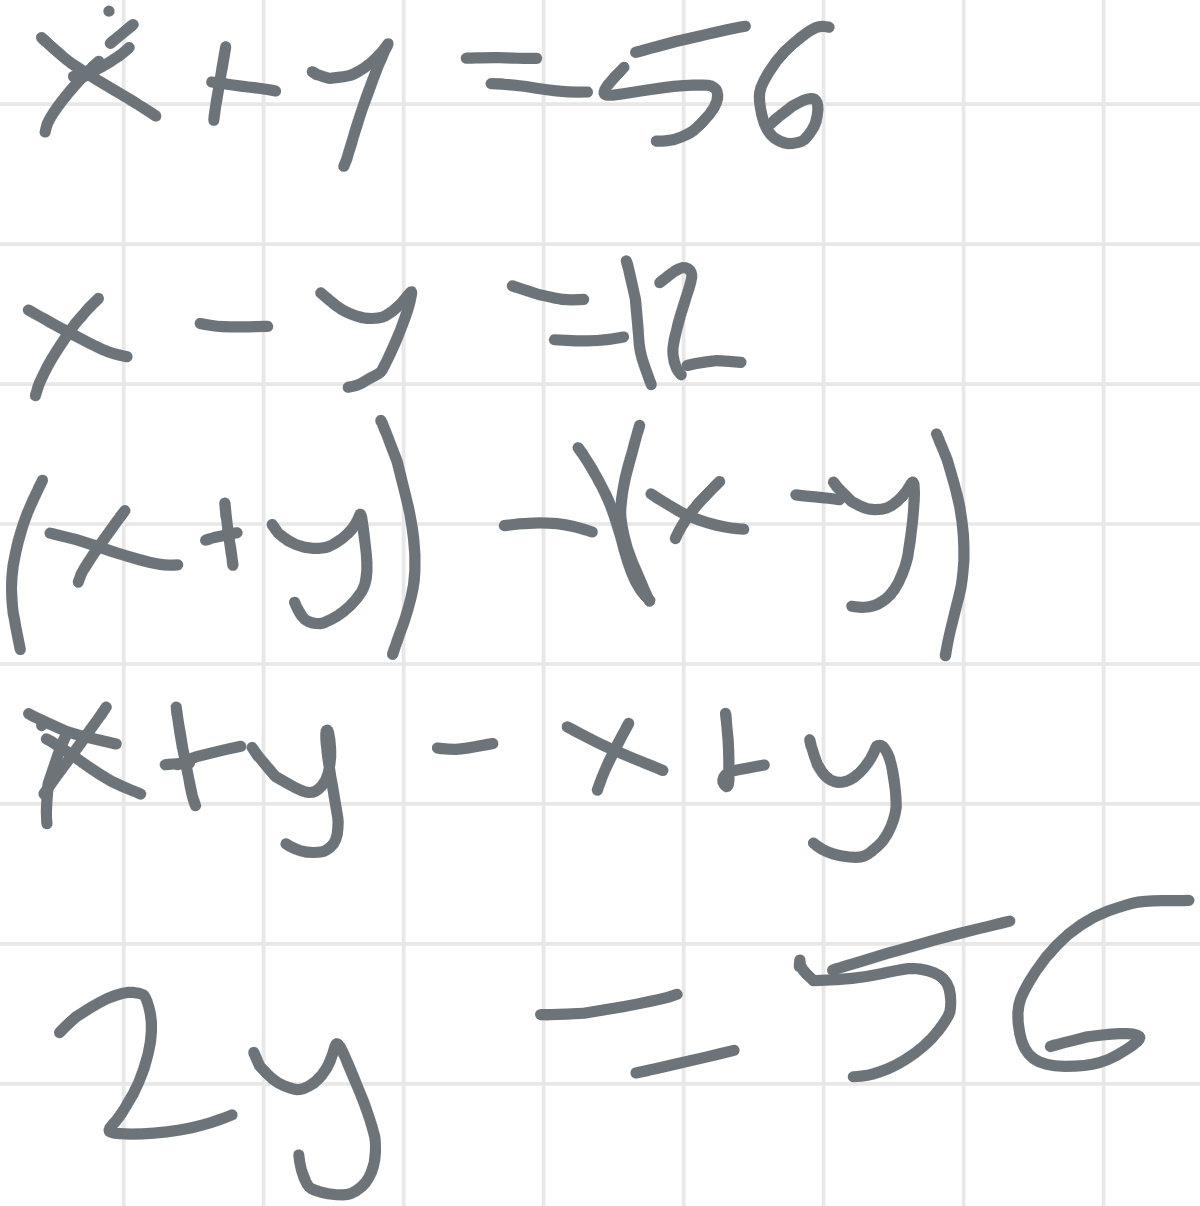 x + y = 56
x - y = 12
(x + y) - (x - y)
x + y - x + y
2y = 56